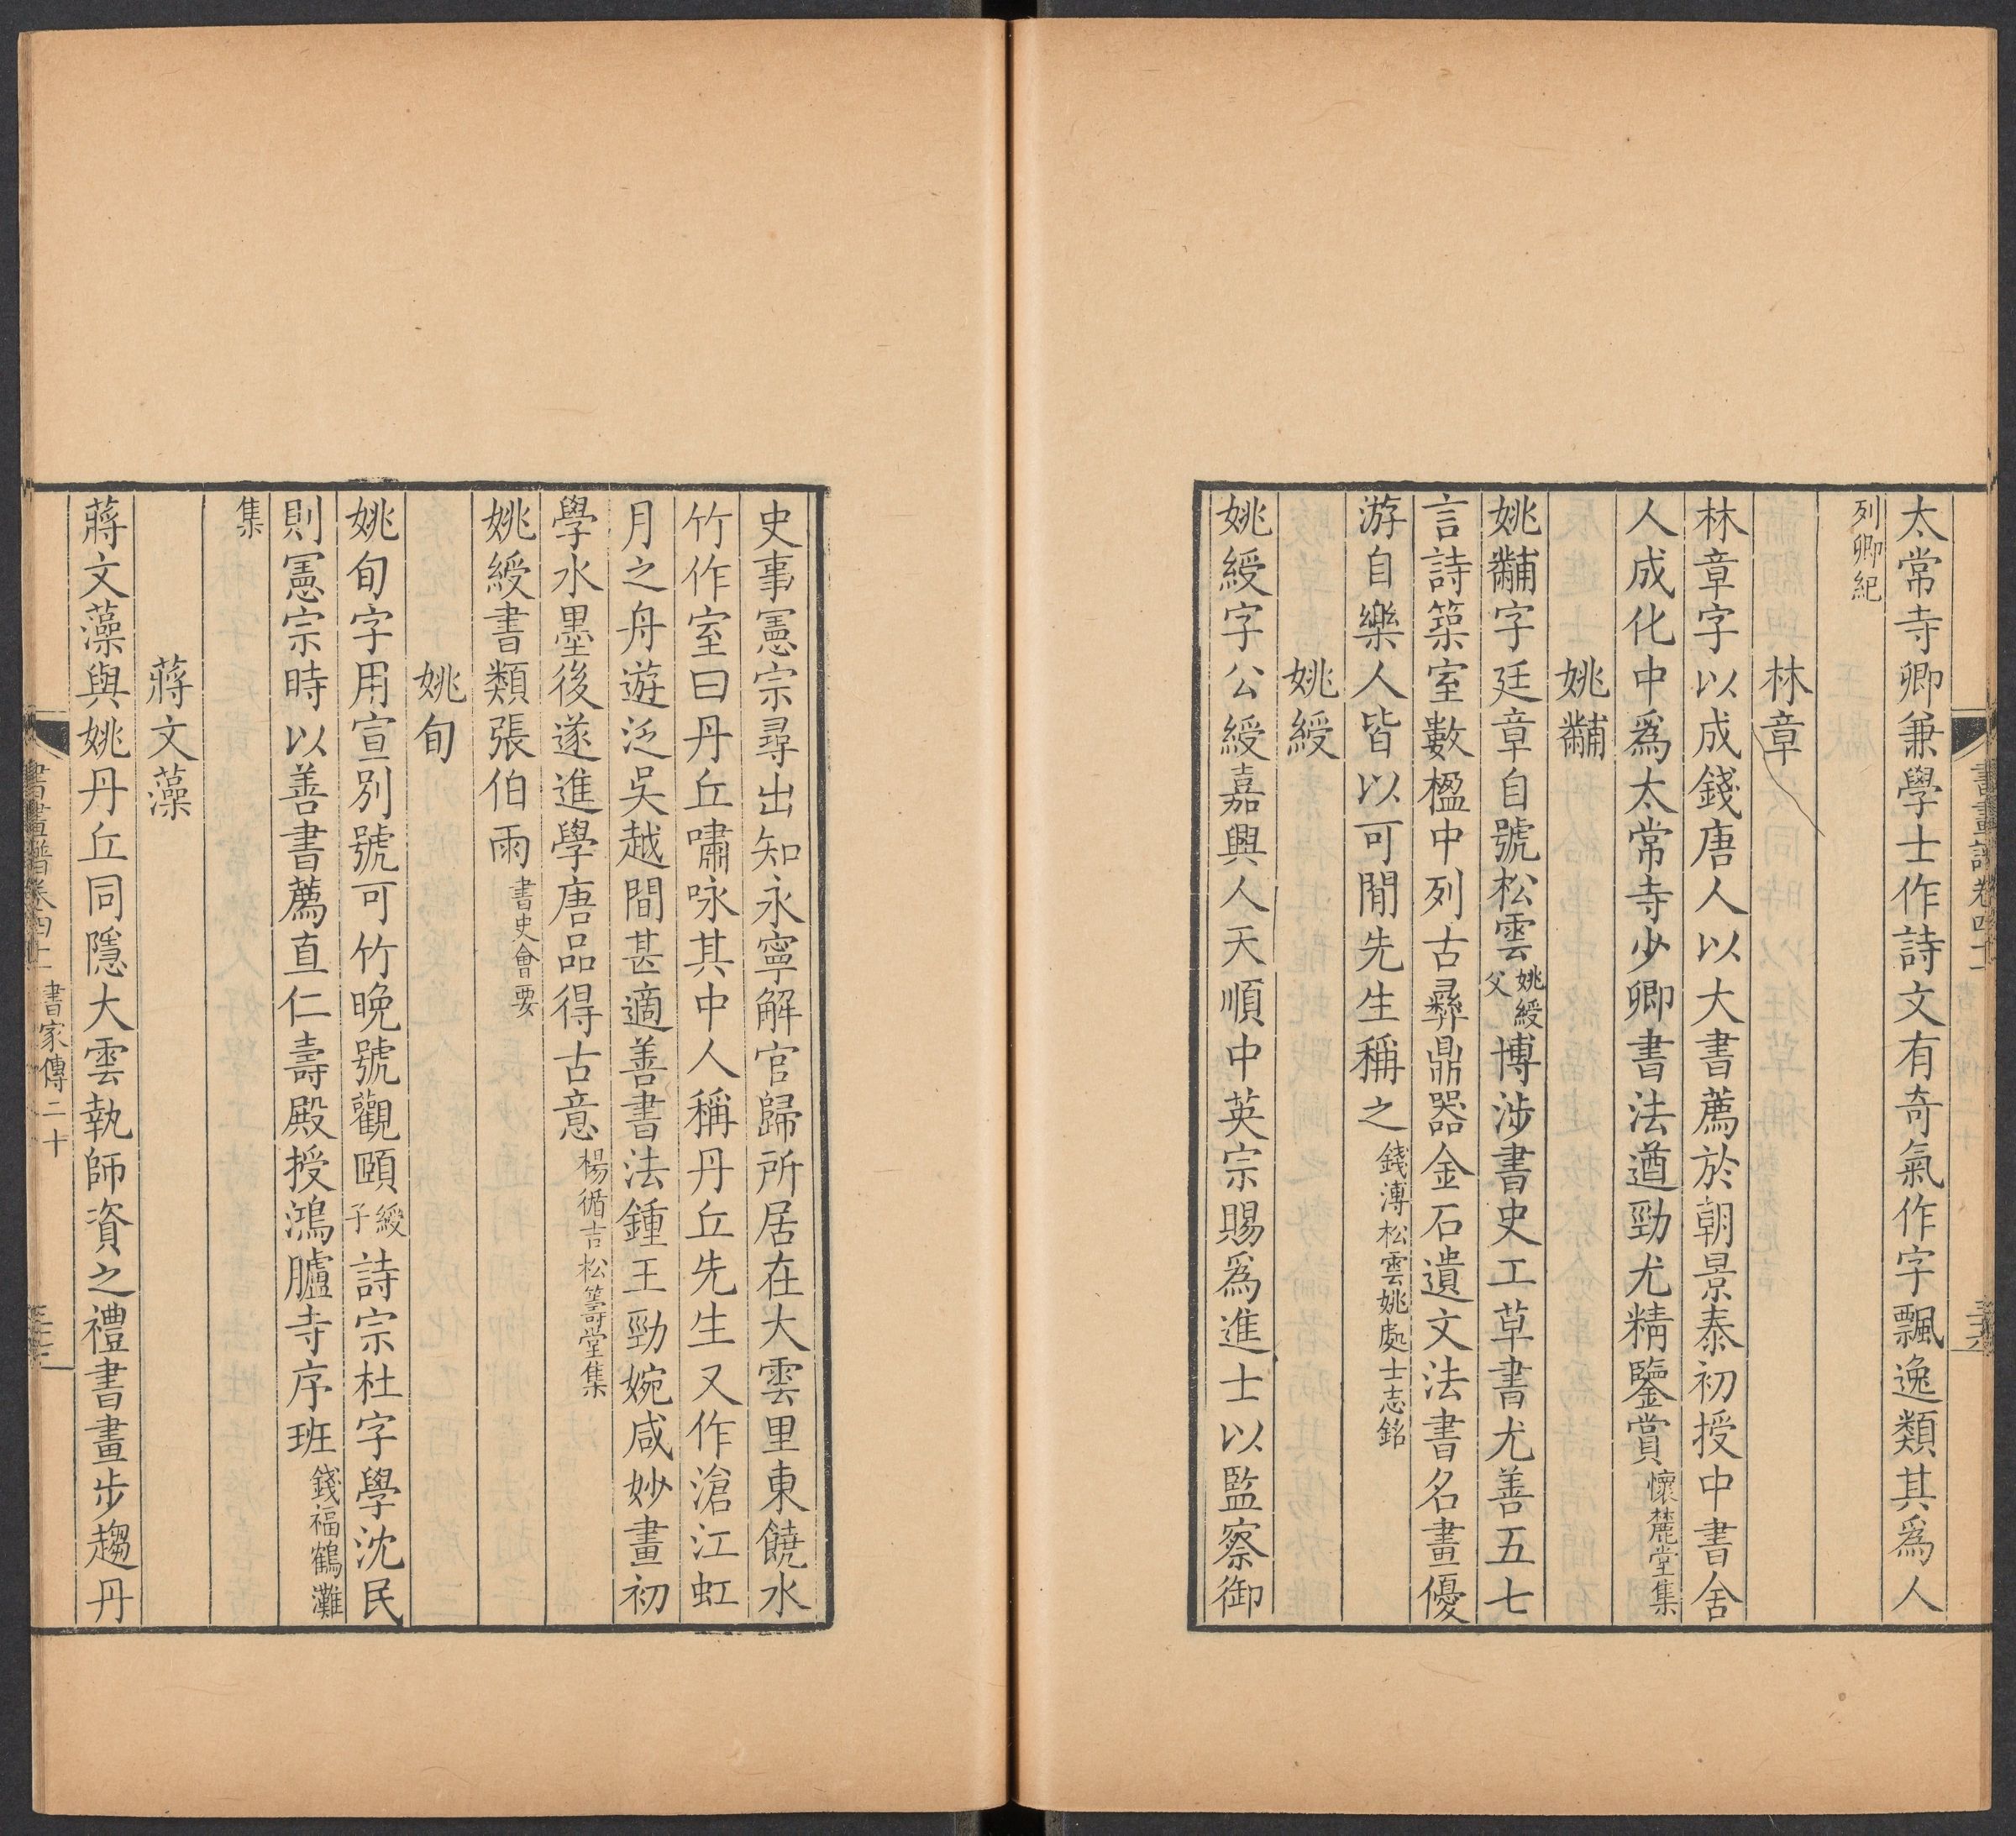 太常寺卿兼學士作詩文有奇氣作字飄逸類其爲人
列卿紀
林章
林章字以成錢唐人以大書薦於朝景泰初授中書舍
人成化中爲太常寺少卿書法遒勁尤精鑒賞懷麓堂集
姚黼
姚黼字廷章自號松雲姚綬父博涉書史工草書尤善五七
言詩築室數楹中列古彝鼎器金石遺文法書名畫優
游自樂人皆以可閒先生稱之錢溥松雲姚處士志銘
姚綬
姚綬字公綬嘉興人天順中英宗賜爲進士以監察御
史事憲宗尋出知永寧解官歸所居在大雲里東饒水
竹作室曰丹丘嘯咏其中人稱丹丘先生又作滄江虹
月之舟遊泛吳越間甚適善書法鍾王勁婉咸妙畫初
學水墨後遂進學唐品得古意楊循吉松籌堂集
姚綬書類張伯雨書史會要
姚旬
姚旬字用宣別號可竹晚號觀頤綬子詩宗杜字學沈民
則憲宗時以善書薦直仁壽殿授鴻臚寺序班錢福鶴灘
集
蔣文藻
蔣文藻與姚丹丘同隱大雲執師資之禮書畫步趨丹
書畫譜卷四十一 書家傳二十